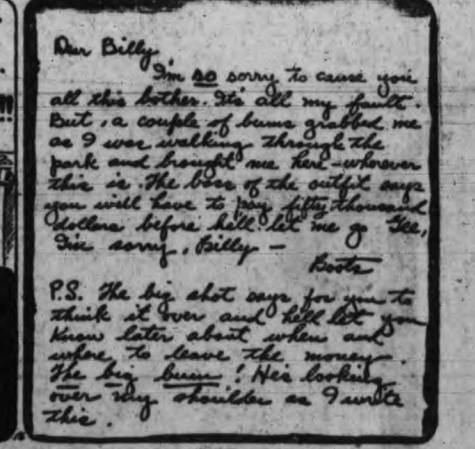 Dear Billy
I'm so sorry to cause you
all this bother. It's all my fault.
But, a couple of bums grabbed me
as I was walking through the
park and brought me here - wherever
this is. The boss of the outfit says
you will have to pay fifty thousand
dollars before he'll let me go. Gee,
I'm sorry, Billy —
Boots
P.S. The big shot says for you to
think it over and he'll let you
know later about when and
where to leave the money.
The big bum! He's looking
over my shoulder as I write
this.
!!